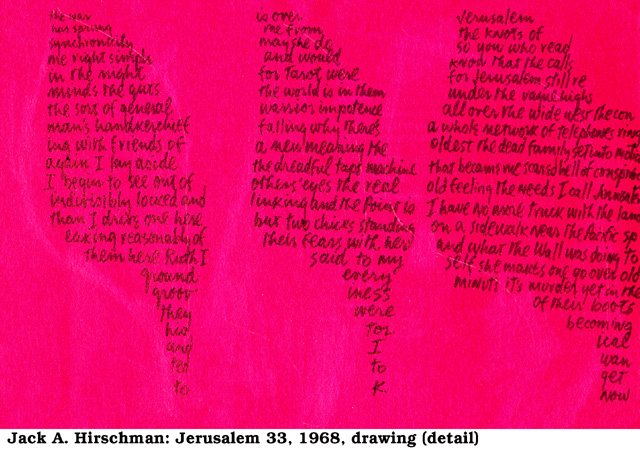 the war
has sprung
synchronicity
me right simple
in the night
minds the guts
the sort of general
man's handkerchief
ing with friends of
again I lay aside
I begin to see out of
indivisibly locked and
than I drive one here
leaking reasonably of
them here Ruth I
ground
groov
they
how
and
ted
to
is over
me from
maybe do
and would
for Tarot were
the world is in them
warrior impotence
falling why there's
a new meaning the
the dreadful taps machine
others' eyes the real
linking and the poise is
but two chicks standing
their fears with her
said to my
every
iness
were
for
I
to
K.
Jerusalem
the knots of
so you who read
know that the calls
for Jerusalem still re
under the vague highs
all over the wide west the con
a whole network of telephones ring
oldest the dead family set into motio
that became me scarred hell of conspira
old feeling the needs I call Jerusale
I have no more truck with the lan
on a sidewalk near the Pacific sp
and what the Wall was doing to
self she makes one go over old
minute its murder yet in the
of their boots
becoming
ical
wan
get
now
Jack A. Hirschman: Jerusalem 33, 1968, drawing (detail)